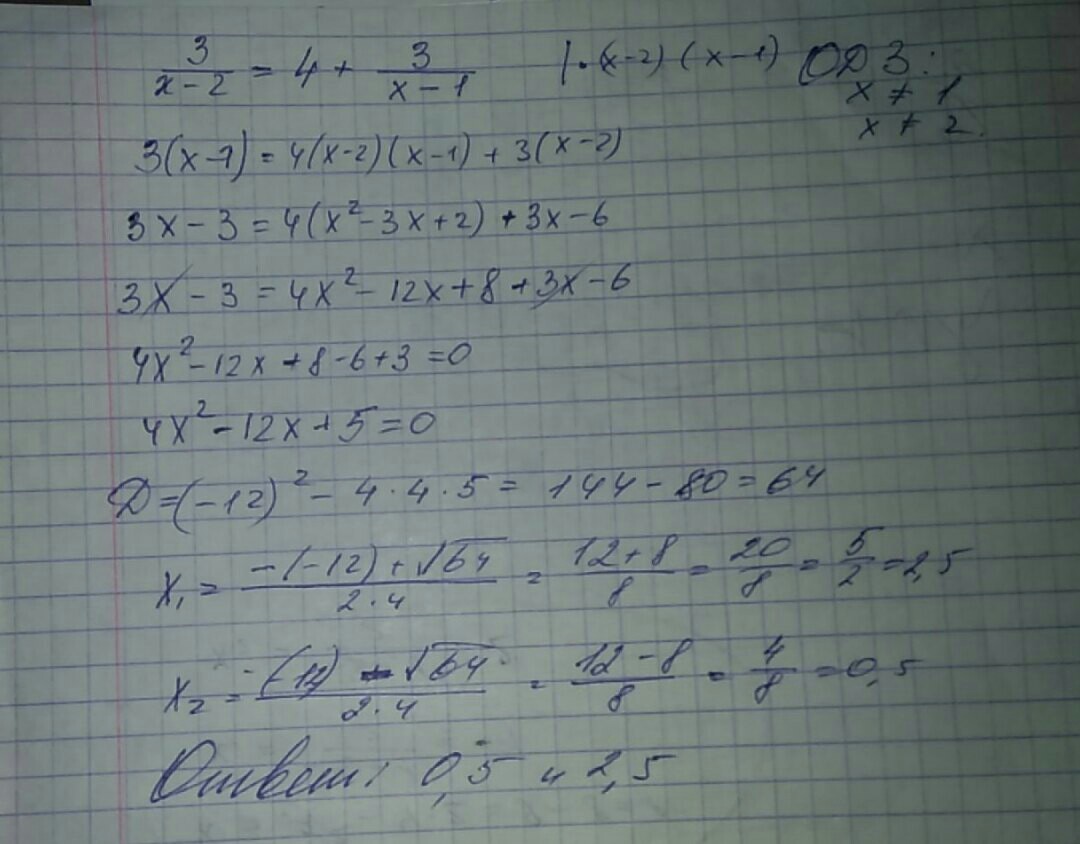 3/(x-2) = 4 + 3/(x-1) |·(x-2)(x-1) ОДЗ:
x ≠ 1
x ≠ 2.
3(x-1) = 4(x-2)(x-1) + 3(x-2)
3x - 3 = 4(x² - 3x + 2) + 3x - 6
3x - 3 = 4x² - 12x + 8 + 3x - 6
4x² - 12x + 8 - 6 + 3 = 0
4x² - 12x + 5 = 0
D = (-12)² - 4·4·5 = 144 - 80 = 64
x₁ = (-(-12) + √64)/(2·4) = (12+8)/8 = 20/8 = 5/2 = 2,5
x₂ = (-(12) - √64)/(2·4) = (12-8)/8 = 4/8 = 0,5
Ответ: 0,5 и 2,5